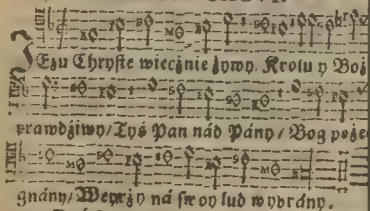 Ezu Chryste wiecżnie żywy. Krolu y Boż
prawdżiwy/Tyś Pan nád Pány/ Bog poże
gnány/ Weyrży ná swoy lud wybrány.